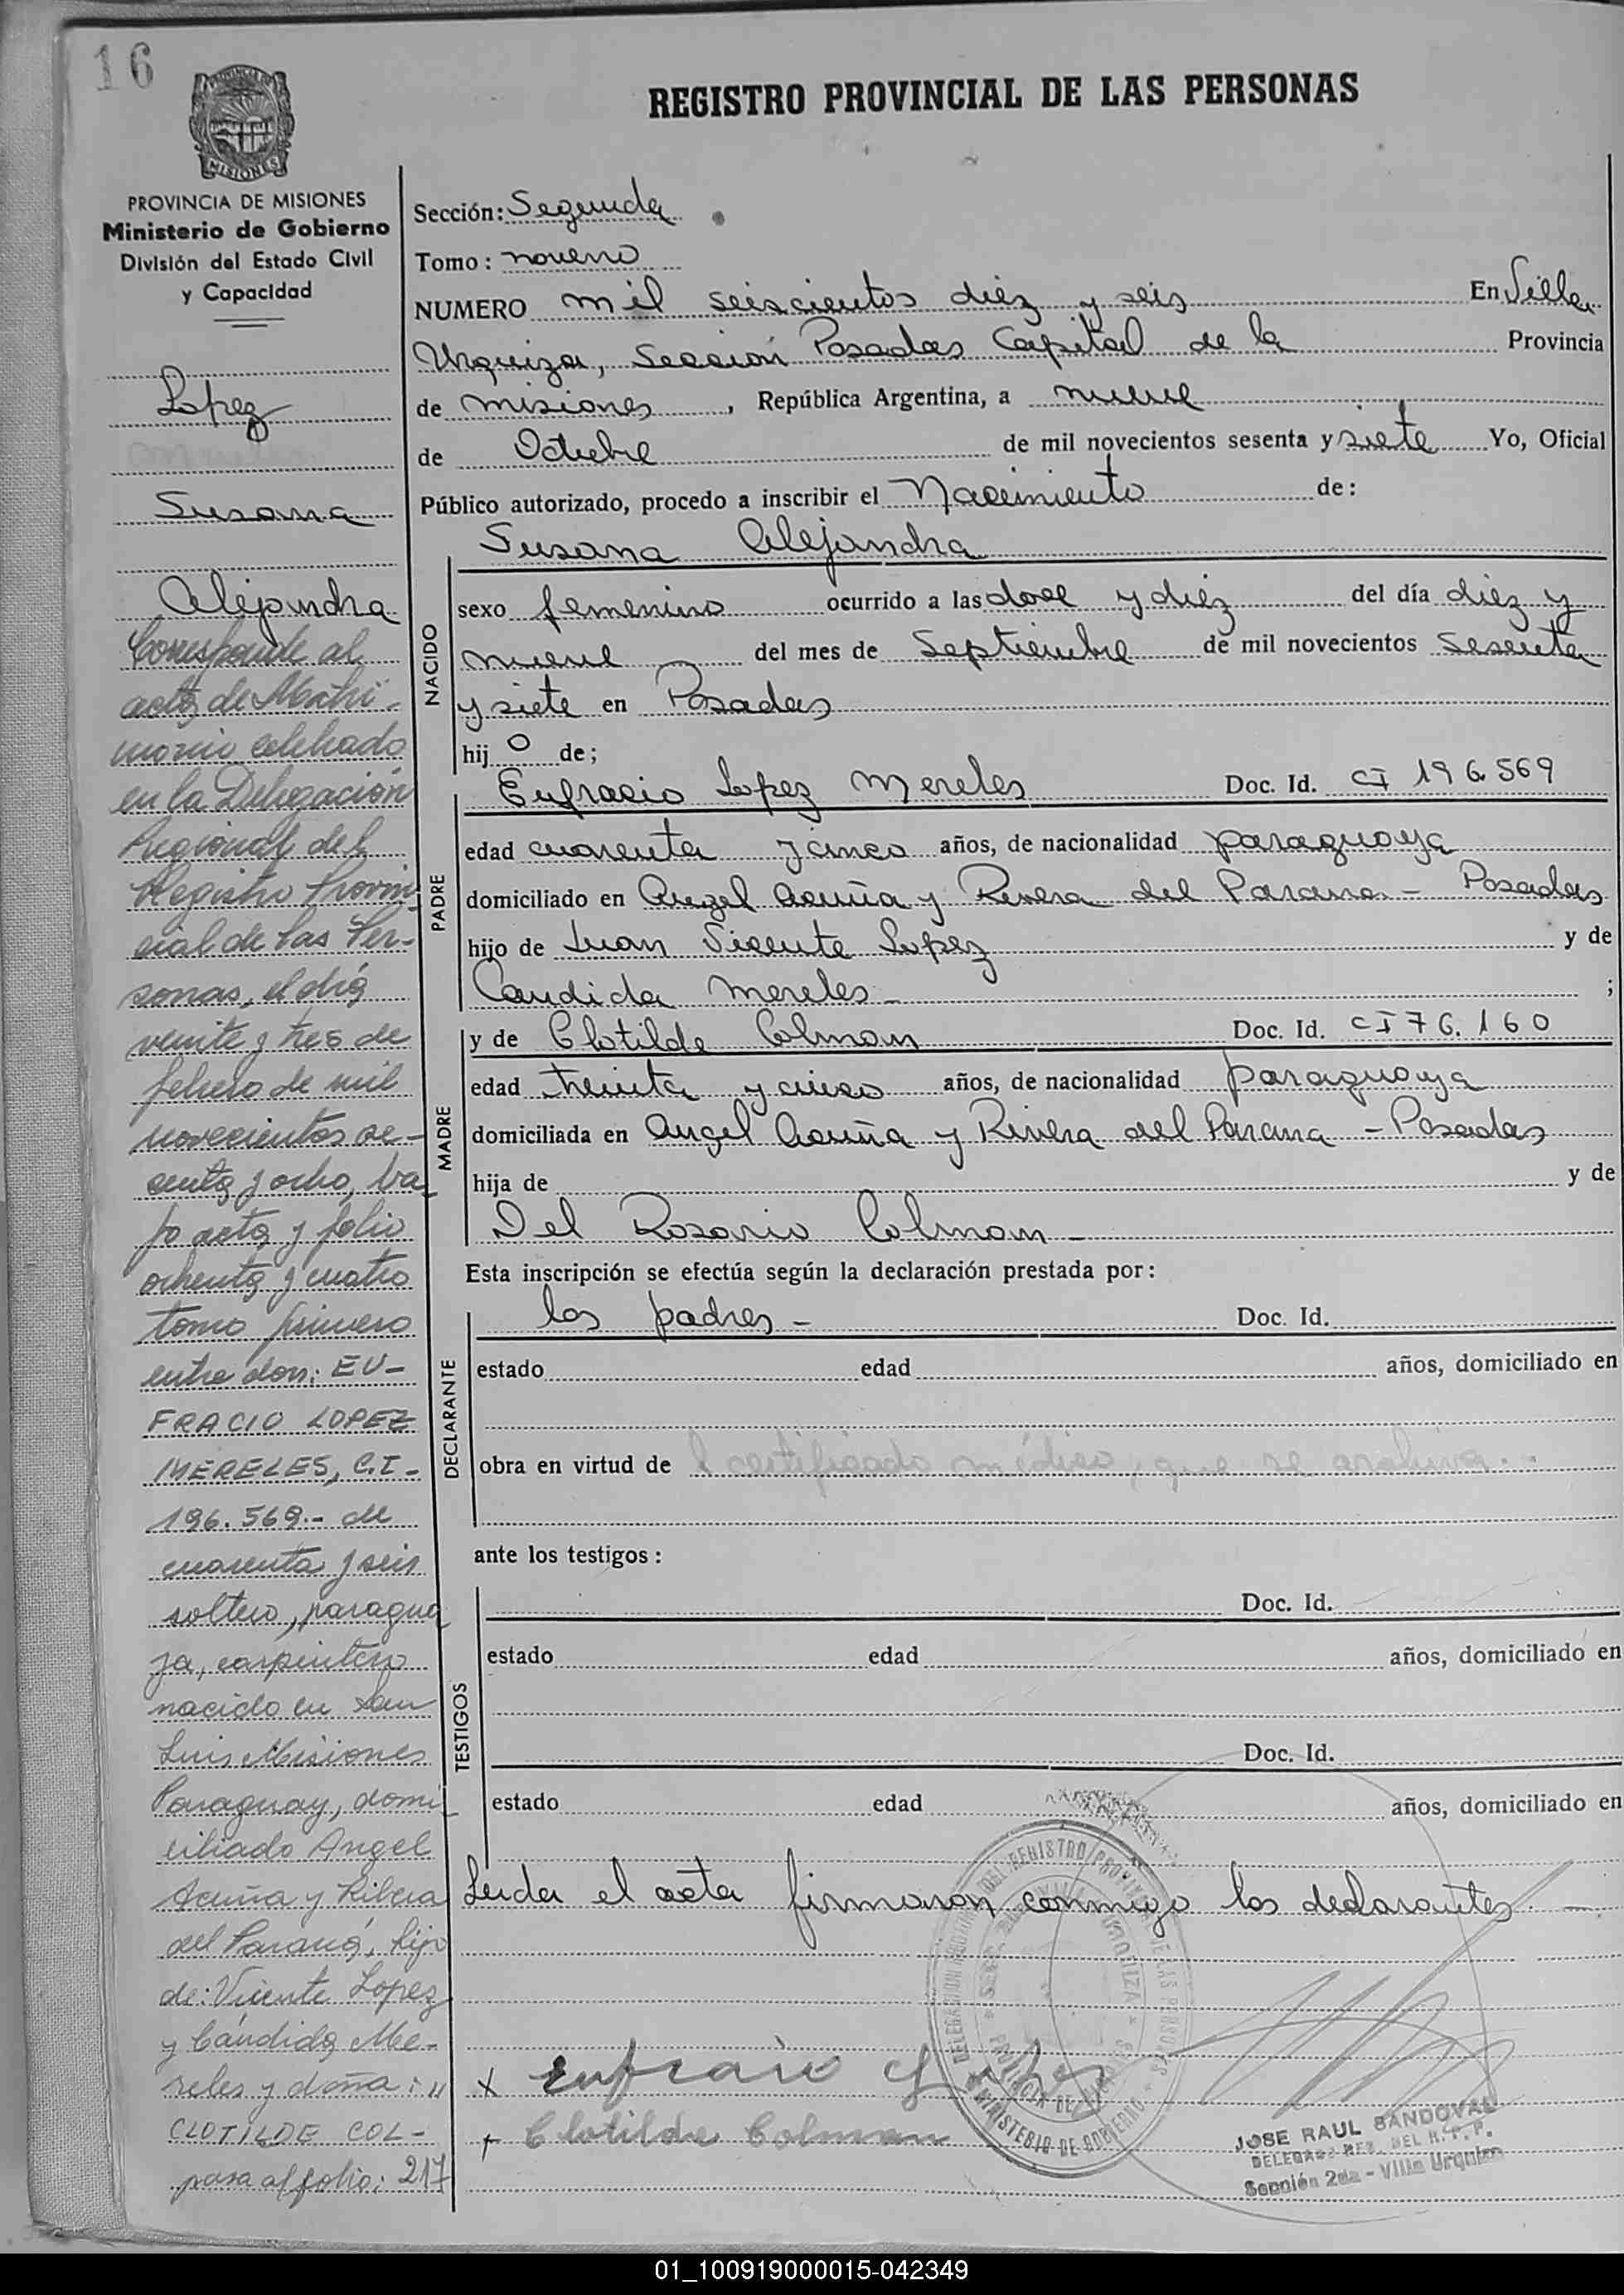 16
REGISTRO PROVINCIAL DE LAS PERSONAS
MISIONES
PROVINCIA DE MISIONES
Ministerio de Gobierno
División del Estado Civil
y Capacidad
Lopez
Susana
Alejandra
Corresponde al
acta de Matri-
monio celebrado
en la Delegación
Regional del
Registro Provin-
cial de las Per-
sonas, el día
veinte y tres de
febrero de mil
novecientos se-
senta y ocho, ba
jo acta y folio
ochenta y cuatro
tomo primero
entre don: EU-
FRACIO LOPEZ
MERELES, C.I-
196.569.- de
cuarenta y seis
soltero, paragua
ya, carpintero
nacido en San
Luis Misiones
Paraguay, domi
ciliado Angel
Acuña y Ribera
del Paraná, hijo
de: Vicente Lopez
y Cándida Me-
reles y doña: "
CLOTILDE COL-
pasa al folio: 217
Sección: Segunda
Tomo: noveno
NUMERO mil seiscientos diez y seis En Villa
Urquiza, Sección Posadas Capital de la Provincia
de misiones, República Argentina, a nueve
de Octubre de mil novecientos sesenta y siete Yo, Oficial
Público autorizado, procedo a inscribir el Nacimiento de:
Susana Alejandra
NACIDO
sexo femenino ocurrido a las doce y diez del día diez y
nueve del mes de Septiembre de mil novecientos sesenta
y siete en Posadas
hij o de;
Eufracio Lopez Mereles Doc. Id. CI 196.569
PADRE
edad cuarenta y cinco años, de nacionalidad paraguaya
domiciliado en Angel Acuña y Rivera del Parana - Posadas
hijo de Juan Vicente Lopez y de
Candida Mereles - ;
y de Clotilde Colman Doc. Id. CI 76.160
MADRE
edad treinta y cinco años, de nacionalidad paraguaya
domiciliada en Angel Acuña y Rivera del Parana - Posadas
hija de y de
Del Rosario Colman -
Esta inscripción se efectúa según la declaración prestada por:
los padres - Doc. Id.
DECLARANTE
estado edad años, domiciliado en
obra en virtud de l certificado médico, que se archiva.
ante los testigos:
Doc. Id.
TESTIGOS
estado edad años, domiciliado en
Doc. Id.
estado edad años, domiciliado en
Leida el acta firmaron conmigo los declarantes. -
x Eufracio Lopez
+ Clotilde Colman
MINISTERIO DE GOBIERNO
JOSE RAUL SANDOVAL
DEL R.P.P.
Sección 2da - Villa Urquiza
01_100919000015-042349